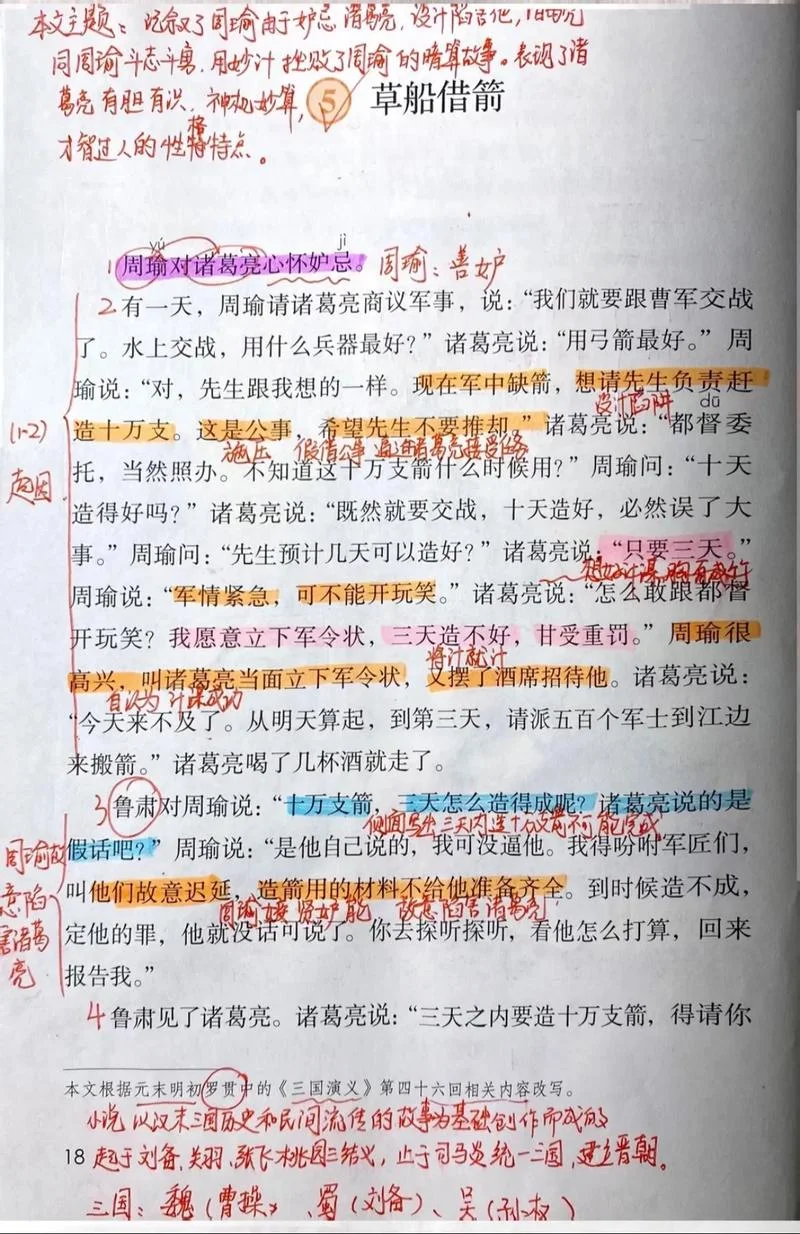 本文主题：记叙了周瑜由于妒忌诸葛亮，设计陷害他，诸葛亮
同周瑜斗志斗勇，用妙计挫败了周瑜的暗算故事。表现了诸
葛亮有胆有识，神机妙算，
才智过人的性格特点。
5 草船借箭
yú jì
1 周瑜对诸葛亮心怀妒忌。 周瑜：善妒
2 有一天，周瑜请诸葛亮商议军事，说：“我们就要跟曹军交战
了。水上交战，用什么兵器最好？”诸葛亮说：“用弓箭最好。”周
瑜说：“对，先生跟我想的一样。现在军中缺箭，想请先生负责赶
设计陷阱 dū
造十万支。这是公事，希望先生不要推却。”诸葛亮说：“都督委
施压 假借公事 逼迫诸葛亮接受任务
(1-2)
起因
托，当然照办。不知道这十万支箭什么时候用？”周瑜问：“十天
造得好吗？”诸葛亮说：“既然就要交战，十天造好，必然误了大
事。”周瑜问：“先生预计几天可以造好？”诸葛亮说：“只要三天。”
想好计谋 胸有成竹
周瑜说：“军情紧急，可不能开玩笑。”诸葛亮说：“怎么敢跟都督
开玩笑？我愿意立下军令状，三天造不好，甘受重罚。”周瑜很
将计就计
高兴，叫诸葛亮当面立下军令状，又摆了酒席招待他。诸葛亮说：
自以为计谋成功
“今天来不及了。从明天算起，到第三天，请派五百个军士到江边
来搬箭。”诸葛亮喝了几杯酒就走了。
3 鲁肃对周瑜说：“十万支箭，三天怎么造得成呢？诸葛亮说的是
侧面写出三天内造十万支箭不可能完成
假话吧？”周瑜说：“是他自己说的，我可没逼他。我得吩咐军匠们，
周瑜故
意陷
害诸葛
亮
叫他们故意迟延，造箭用的材料不给他准备齐全。到时候造不成，
周瑜嫉贤妒能 故意陷害诸葛亮
定他的罪，他就没话可说了。你去探听探听，看他怎么打算，回来
报告我。”
4 鲁肃见了诸葛亮。诸葛亮说：“三天之内要造十万支箭，得请你
本文根据元末明初罗贯中的《三国演义》第四十六回相关内容改写。
小说 以汉末三国历史和民间流传的故事为基础创作而成的
18 起于刘备、关羽、张飞桃园三结义，止于司马炎统一三国，建立晋朝。
三国：魏（曹操）、蜀（刘备）、吴（孙权）